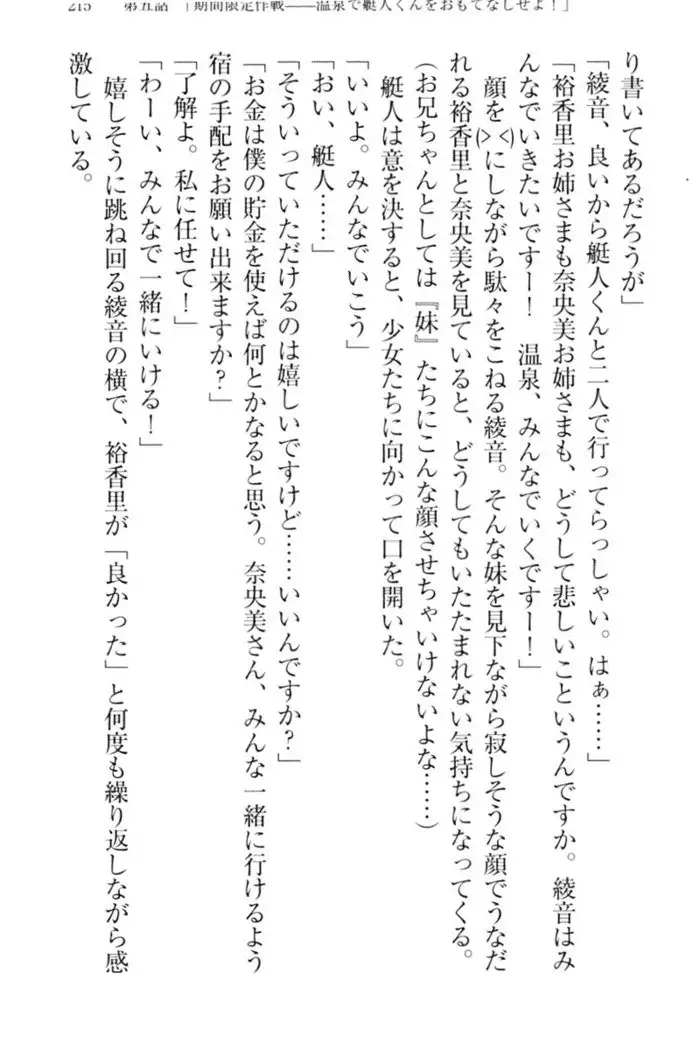 215　第五話　「期間限定作戦――温泉で艇人くんをおもてなしせよ！」
り書いてあるだろうが」
「綾音、良いから艇人くんと二人で行ってらっしゃい。はぁ……」
「裕香里お姉さまも奈央美お姉さまも、どうして悲しいこというんですか。綾音はみ
んなでいきたいですー！　温泉、みんなでいくですー！」
　顔を(＞＜)にしながら駄々をこねる綾音。そんな妹を見下ながら寂しそうな顔でうなだ
れる裕香里と奈央美を見ていると、どうしてもいたたまれない気持ちになってくる。
（お兄ちゃんとしては『妹』たちにこんな顔させちゃいけないよな……）
　艇人は意を決すると、少女たちに向かって口を開いた。
「いいよ。みんなでいこう」
「おい、艇人……」
「そういっていただけるのは嬉しいですけど……いいんですか？」
「お金は僕の貯金を使えば何とかなると思う。奈央美さん、みんな一緒に行けるよう
宿の手配をお願い出来ますか？」
「了解よ。私に任せて！」
「わーい、みんなで一緒にいける！」
　嬉しそうに跳ね回る綾音の横で、裕香里が「良かった」と何度も繰り返しながら感
激している。